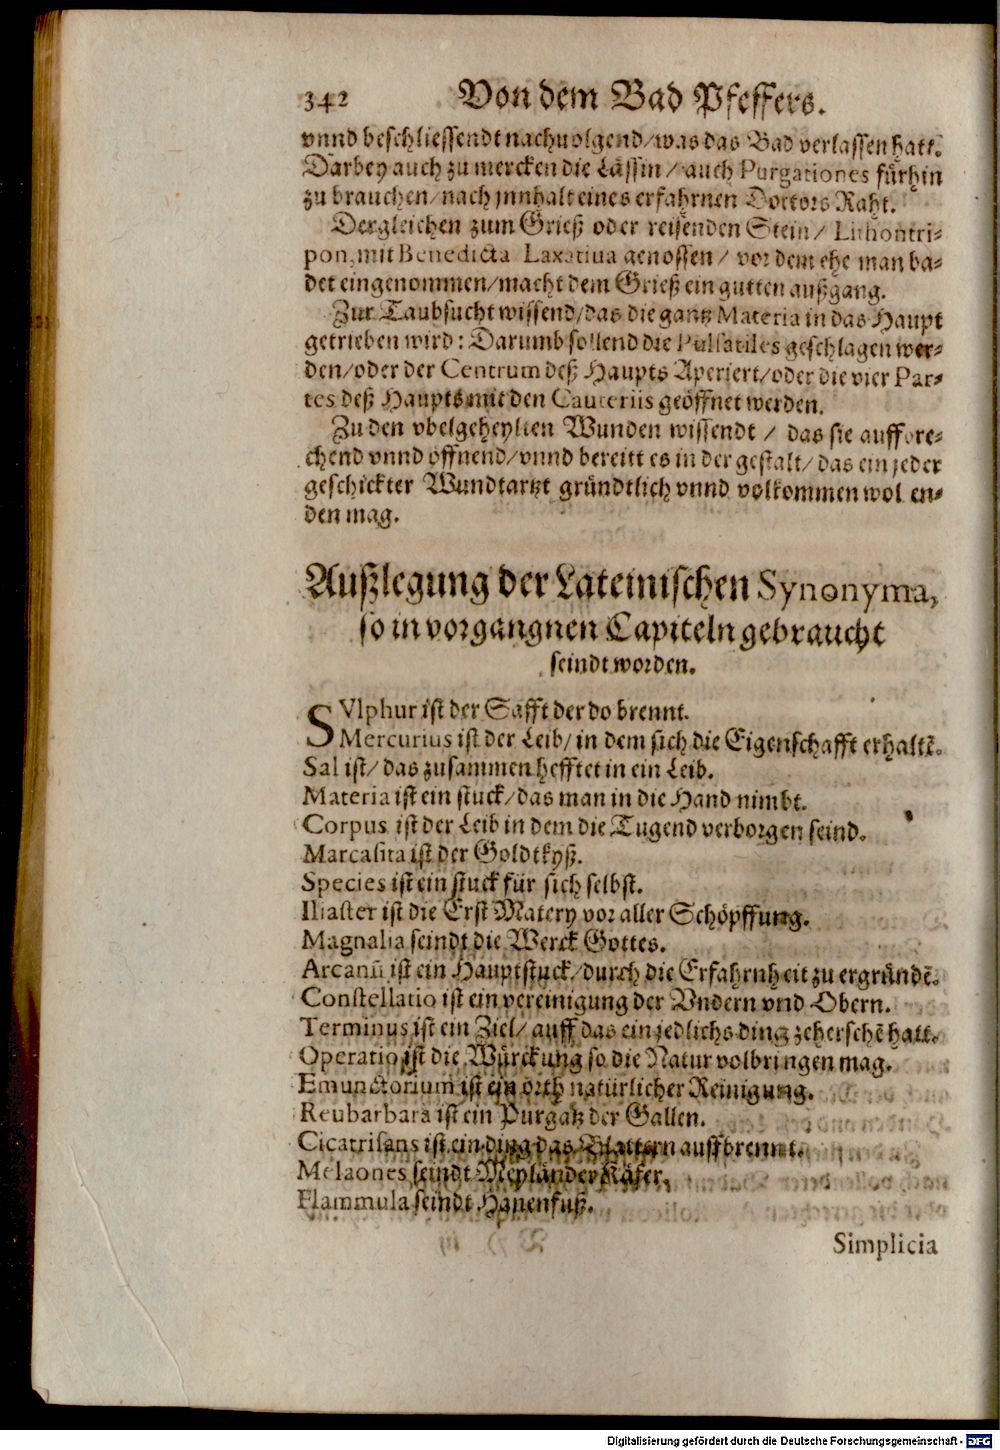 342 Von dem Bad Pfeffers.
vnnd beschliessendt nachuolgend/was das Bad verlassen hatt.
Darbey auch zu mercken die Lässin / auch Purgationes fürhin
zu brauchen/nach jnnhalt eines erfahrnen Doctors Raht.
Dergleichen zum Grieß oder reisenden Stein/ Lithontri-
pon, mit Benedicta Laxatiua genossen / vor dem ehe man ba-
det eingenommen/macht dem Grieß ein gutten außgang.
Zur Taubsucht wissend/das die gantz Materia in das Haupt
getrieben wird: Darumb sollend die Pulsatiles geschlagen wer-
den/oder der Centrum deß Haupts Aperiert/oder die vier Par-
tes deß Haupts mit den Cauteriis geöffnet werden.
Zu den vbelgeheylten Wunden wissendt / das sie auffbre-
chend vnnd öffnend/vnnd bereitt es in der gestalt/das ein jeder
geschickter Wundtartzt gründtlich vnnd volkommen wol en-
den mag.
Außlegung der Lateinischen Synonyma,
so in vorgangnen Capiteln gebraucht
seindt worden.
SVlphur ist der Safft der do brennt.
Mercurius ist der Leib/ in dem sich die Eigenschafft erhaltẽ.
Sal ist/ das zusammen hefftet in ein Leib.
Materia ist ein stuck/das man in die Hand nimbt.
Corpus ist der Leib in dem die Tugend verborgen seind.
Marcasita ist der Goldtkyß.
Species ist ein stuck für sich selbst.
Iliaster ist die Erst Matery vor aller Schöpffung.
Magnalia seindt die Werck Gottes.
Arcanũ ist ein Hauptstuck/durch die Erfahrnheit zu ergründẽ.
Constellatio ist ein vereinigung der Vndern vnd Obern.
Terminus ist ein Ziel/ auff das ein jedlichs ding zeherschẽ hatt.
Operatio ist die Würckung so die Natur volbringen mag.
Emunctorium ist ein orth natürlicher Reinigung.
Reubarbara ist ein Purgatz der Gallen.
Cicatrisans ist ein ding das Blattern auffbrennt.
Melaones seindt Meyländer Käfer.
Flammula seindt Hanenfuß.
Simplicia
Digitalisierung gefördert durch die Deutsche Forschungsgemeinschaft - DFG